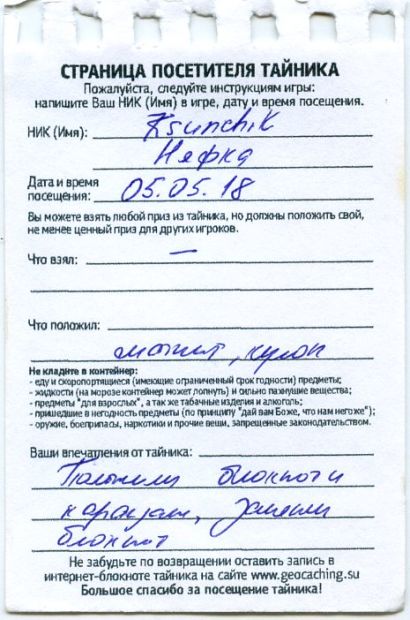 СТРАНИЦА ПОСЕТИТЕЛЯ ТАЙНИКА
Пожалуйста, следуйте инструкциям игры:
напишите Ваш НИК (Имя) в игре, дату и время посещения.
НИК (Имя): Ksunchik
Нафка
Дата и время
посещения: 05.05.18
Вы можете взять любой приз из тайника, но должны положить свой,
не менее ценный приз для других игроков.
Что взял: —
Что положил:
магнит, кулон
Не кладите в контейнер:
- еду и скоропортящиеся (имеющие ограниченный срок годности) предметы;
- жидкости (на морозе контейнер может лопнуть) и сильно пахнущие вещества;
- предметы "для взрослых", а так же табачные изделия и алкоголь;
- пришедшие в негодность предметы (по принципу "дай вам Боже, что нам негоже");
- оружие, боеприпасы, наркотики и прочие вещи, запрещенные законодательством.
Ваши впечатления от тайника:
Положили блокнот и
карандаш,
блокнот
Не забудьте по возвращении оставить запись в
интернет-блокноте тайника на сайте www.geocaching.su
Большое спасибо за посещение тайника!